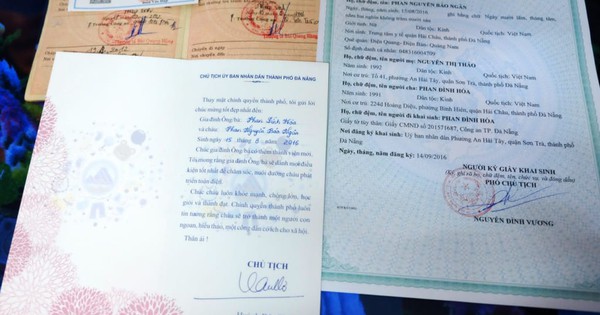 CHỦ TỊCH ỦY BAN NHÂN DÂN THÀNH PHỐ ĐÀ NẴNG
Thay mặt chính quyền thành phố, tôi gửi lời
chúc mừng tốt đẹp nhất đến:
Gia đình Ông/bà: Phan Đình Hòa
và cháu: Phan Nguyễn Bảo Ngân
Sinh ngày 15 8 2016
Chúc gia đình Ông/bà có thêm thành viên mới.
Tôi mong rằng gia đình Ông/bà sẽ dành mọi điều
kiện tốt nhất để chăm sóc, nuôi dưỡng cháu phát
triển toàn diện.
Chúc cháu luôn khỏe mạnh, chóng lớn, học
giỏi và thành đạt. Chính quyền thành phố luôn
tin tưởng rằng cháu sẽ trở thành một người con
ngoan, hiếu thảo, một công dân có ích cho xã hội.
Thân ái!
CHỦ TỊCH
Họ, chữ đệm, tên: PHAN NGUYỄN BẢO NGÂN
Ngày, tháng, năm sinh: ghi bằng chữ: Ngày mười năm, tháng tám,
năm hai nghìn không trăm mười sáu
Nơi sinh: Trung tâm y tế quận Hải Châu, thành phố Đà Nẵng
Quê quán: Điện Quang- Điện Bàn- Quảng Nam
Số định danh cá nhân:
Họ, chữ đệm, tên người mẹ: NGUYỄN THỊ THẢO
Năm sinh: 1992 Dân tộc: Kinh Quốc tịch: Việt Nam
Nơi cư trú: Tổ 41, phường An Hải Tây, quận Sơn Trà, thành phố Đà Nẵng
Họ, chữ đệm, tên người cha: PHAN ĐÌNH HÒA
Năm sinh: 1991 Dân tộc: Kinh Quốc tịch: Việt Nam
Nơi cư trú: 224d Hoàng Diệu, phường Bình Hiên, quận Hải Châu, thành phố Đà Nẵng
Họ, chữ đệm, tên người đi khai sinh: PHAN ĐÌNH HÒA
Giấy tờ tùy thân: Giấy CMND số 201571687, Công an TP. Đà Nẵng
Nơi đăng ký khai sinh: Uỷ ban nhân dân Phường An Hải Tây, quận Sơn Trà, thành phố
Đà Nẵng
Ngày, tháng, năm đăng ký: 14/09/2016
NGƯỜI KÝ GIẤY KHAI SINH
(Ký, ghi rõ họ, chữ đệm, tên, chức vụ và đóng dấu)
PHÓ CHỦ TỊCH
NGUYỄN ĐÌNH VƯƠNG